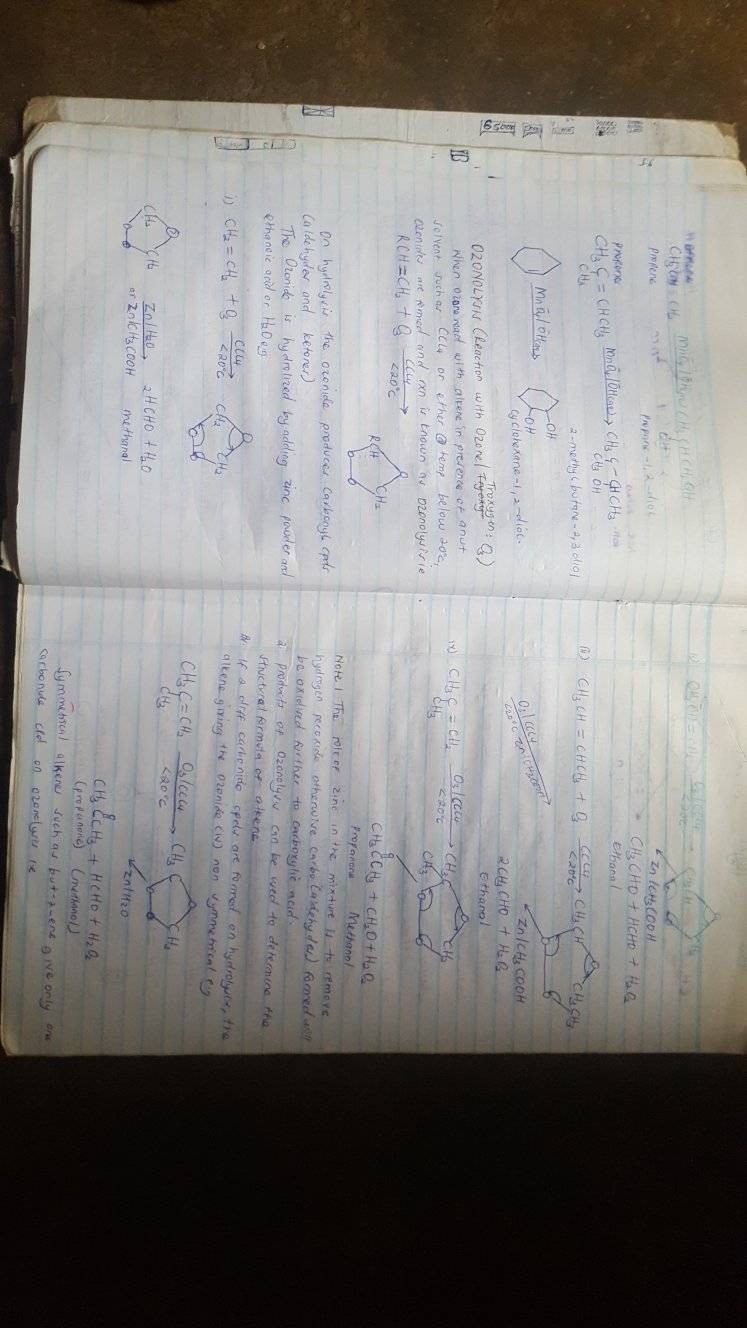 56
Propene
CH₃CH = CH₂ MnO₄⁻/OH⁻(aq) CH₃CHCH₂OH
propene
propane-1,2-diol
propene
CH₃C = CHCH₃ MnO₄⁻/OH⁻(aq)→ CH₃C – CHCH₃
CH₃ CH₃ OH
2-methylbutane-2,3diol
MnO₄⁻/OH⁻(aq)→ OH
OH
cyclohexane-1,2-diol.
OZONOLYSIS (Reaction with Ozone/ Trioxygen: O₃)
When ozone react with alkene in presence of an inert
solvent such as CCl₄ or ether @ temp below 20°C,
ozonides are formed and rxn is known as ozonolysis ie
RCH=CH₂ + O₃ CCl₄→ RCH CH₂
<20°C O O O
On hydrolysis the ozonide produces carbonyl cpds
(aldehydes and ketones)
The Ozonide is hydrolized by adding zinc powder and
ethanoic acid or H₂O eg
i) CH₂=CH₂ + O₃ CCl₄→ CH₂ CH₂
<20°C O O O
CH₂ CH₂ Zn/H₂O→ 2HCHO + H₂O
O O O or Zn/CH₃COOH methanal
Zn/CH₃COOH
CH₃CHO + HCHO + H₂O₂
Ethanal
CH₃CH = CHCH₃ + O₃ CCl₄→ CH₃CH CHCH₃
<20°C O O O
O₃/CCl₄
<20°C Zn/CH₃COOH
Zn/CH₃COOH
2CH₃CHO + H₂O₂
Ethanal
iv) CH₃C = CH₂ O₃/CCl₄→ CH₃C CH₂
CH₃ <20°C CH₃ O O O
CH₃CCH₃ + CH₂O + H₂O₂
O
Propanone Methanal
Note 1. The role of zinc in the mixture is to remove
hydrogen peroxide otherwise carbo (aldehydes) formed will
be oxidised further to carboxylic acid.
2. products of ozonolysis can be used to determine the
structural formula of alkene
If 2 diff carbonide cpds are formed on hydrolysis, the
alkene giving the ozonide (is) non symmetrical Eg
CH₃C=CH₂ O₃/CCl₄→ CH₃C CH₂
CH₃ <20°C O O O
Zn/H₂O
O
CH₃CCH₃ + HCHO + H₂O₂
(propanone) (methanal)
Symmetrical alkenes such as but-2-ene give only one
carbonide cpd on ozonolysis ie